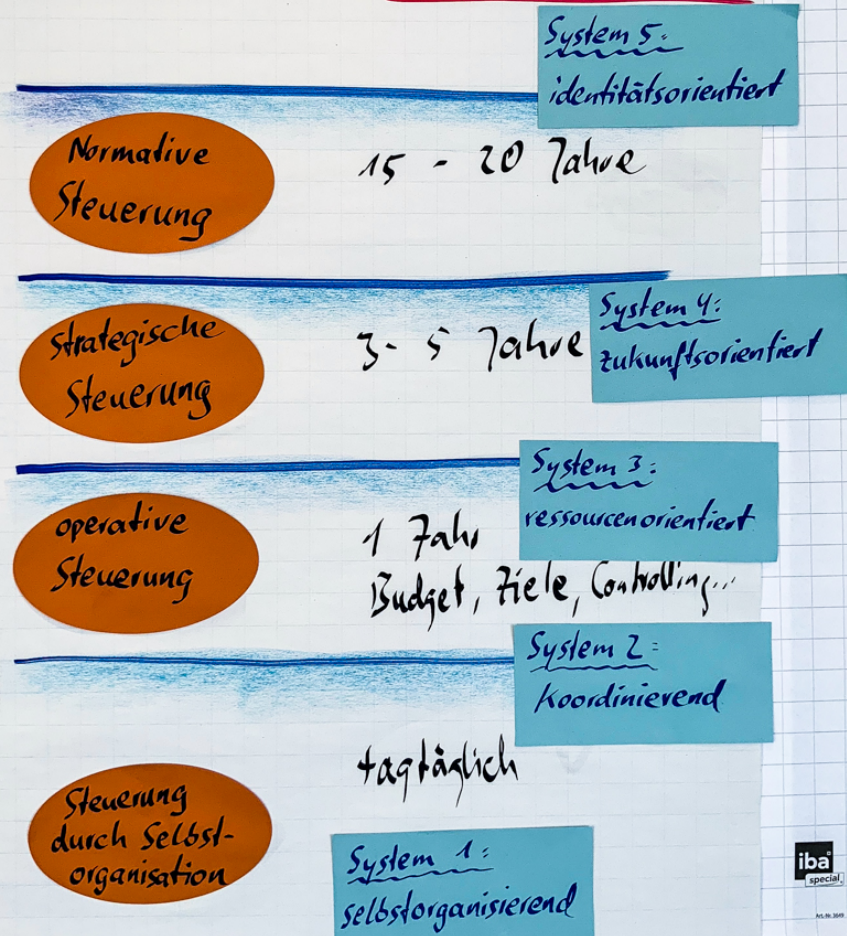 System 5:
identitätsorientiert
Normative
Steuerung
15 - 20 Jahre
System 4:
zukunftsorientiert
Strategische
Steuerung
3 - 5 Jahre
System 3:
ressourcenorientiert
operative
Steuerung
1 Jahr
Budget, Ziele, Controlling...
System 2:
Koordinierend
tagtäglich
Steuerung
durch Selbst-
organisation
System 1:
selbstorganisierend
iba
special.
Art.-Nr. 3649